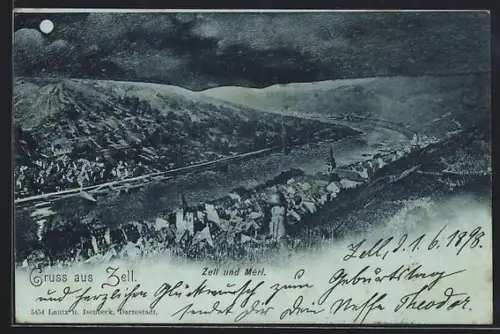 Zell und Merl.
Gruss aus Zell.
Zell, d. 1. 6. 1898.
und herzlichen Glückwunsch zum Geburtstag
sendet dir dein Neffe Theodor.
5454 Lautz u. Isenbeck, Darmstadt.